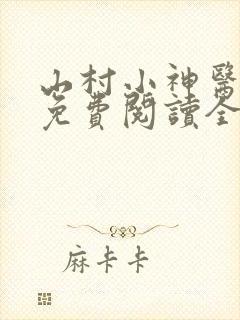 山村小神醫
免費閱讀全
麻卡卡